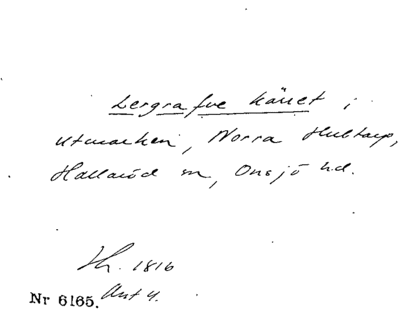 Lergrafve kärret i
utmarken, Norra Hultarp,
Hallaröd sn, Onsjö hd.
Lh. 1816
Nr 6165. Akt 4.